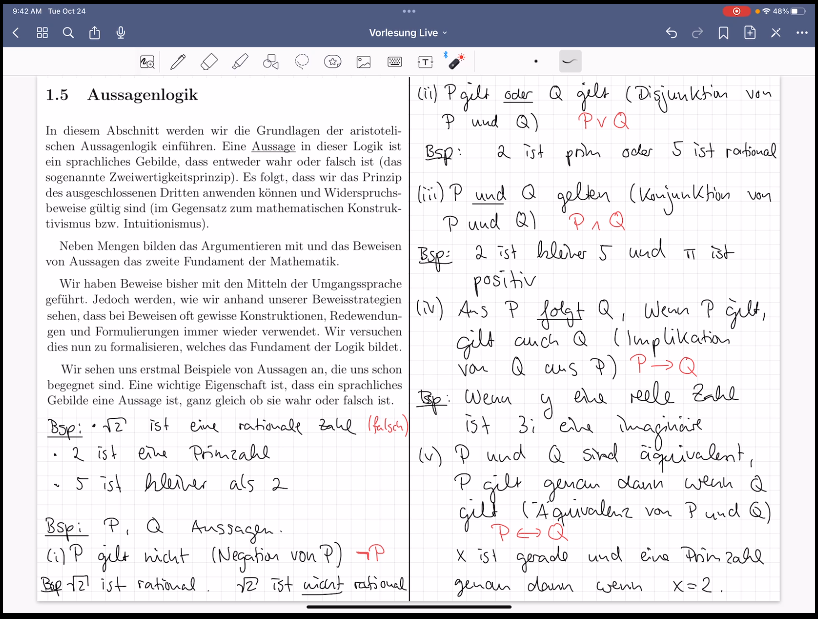 9:42 AM Tue Oct 24
48%
Vorlesung Live
1.5 Aussagenlogik
In diesem Abschnitt werden wir die Grundlagen der aristoteli-
schen Aussagenlogik einführen. Eine Aussage in dieser Logik ist
ein sprachliches Gebilde, dass entweder wahr oder falsch ist (das
sogenannte Zweiwertigkeitsprinzip). Es folgt, dass wir das Prinzip
des ausgeschlossenen Dritten anwenden können und Widerspruchs-
beweise gültig sind (im Gegensatz zum mathematischen Konstruk-
tivismus bzw. Intuitionismus).
Neben Mengen bilden das Argumentieren mit und das Beweisen
von Aussagen das zweite Fundament der Mathematik.
Wir haben Beweise bisher mit den Mitteln der Umgangssprache
geführt. Jedoch werden, wie wir anhand unserer Beweisstrategien
sehen, dass bei Beweisen oft gewisse Konstruktionen, Redewendun-
gen und Formulierungen immer wieder verwendet. Wir versuchen
dies nun zu formalisieren, welches das Fundament der Logik bildet.
Wir sehen uns erstmal Beispiele von Aussagen an, die uns schon
begegnet sind. Eine wichtige Eigenschaft ist, dass ein sprachliches
Gebilde eine Aussage ist, ganz gleich ob sie wahr oder falsch ist.
Bsp: · √2 ist eine rationale Zahl (falsch)
· 2 ist eine Primzahl
· 5 ist kleiner als 2
Bsp: P, Q Aussagen.
(i) P gilt nicht (Negation von P) ¬P
Bsp √2 ist rational. √2 ist nicht rational
(ii) P gilt oder Q gilt (Disjunktion von
P und Q) P ∨ Q
Bsp: 2 ist prim oder 5 ist rational
(iii) P und Q gelten (Konjunktion von
P und Q) P ∧ Q
Bsp: 2 ist kleiner 5 und π ist
positiv
(iv) Aus P folgt Q, Wenn P gilt,
gilt auch Q (Implikation
von Q aus P) P → Q
Bsp: Wenn y eine reelle Zahl
ist 3i eine imaginäre
(v) P und Q sind äquivalent,
P gilt genau dann wenn Q
gilt (Äquivalenz von P und Q)
P ↔ Q
x ist gerade und eine Primzahl
genau dann wenn x = 2.